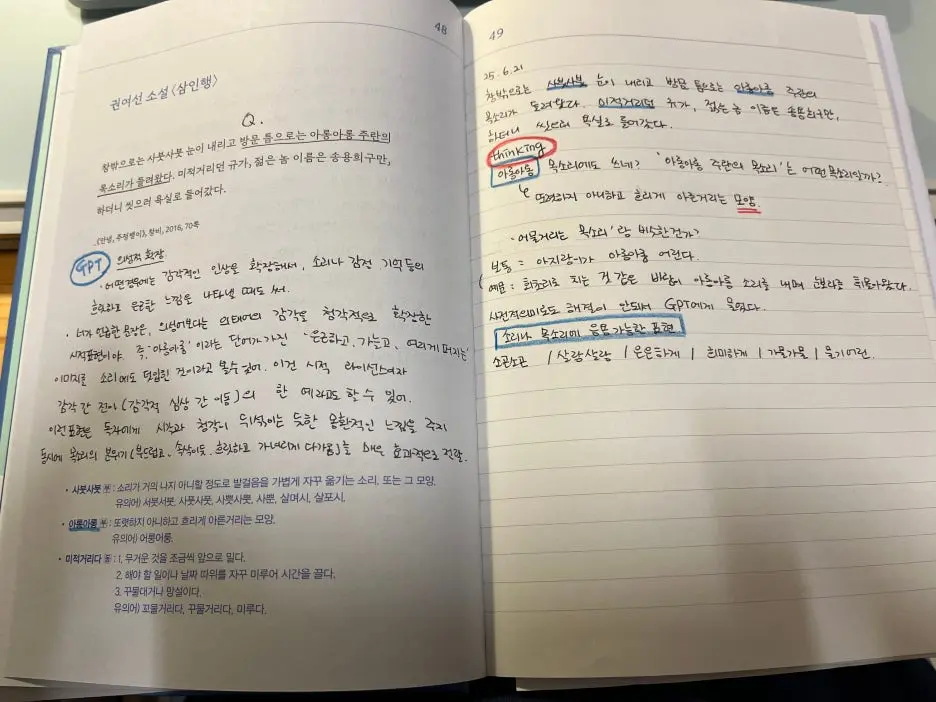 48
권여선 소설 <삼인행>
Q.
창밖으로는 사붓사붓 눈이 내리고 방문 틈으로는 아롱아롱 주란의
목소리가 들려왔다. 미적거리던 규가, 젊은 놈 이름은 송용희구만,
하더니 씻으러 욕실로 들어갔다.
_《안녕, 주정뱅이》, 창비, 2016, 70쪽
GPT 의성적 확장
· 어떤경우에는 감각적인 인상을 확장해서, 소리나 감정 기억 등의
흐릿하고 은근한 느낌을 나타낼 때도 써.
· 네가 인용한 문장은, 의성어보다는 의태어의 감각을 청각적으로 확장한
시적표현이야. 즉, '아롱아롱' 이라는 단어가 가진 '은은하고, 가늘고, 여리게 퍼지는'
이미지를 소리에도 덧입힌 것이라고 볼 수 있어. 이건 시적 라이선스이자
감각 간 전이 (감각적 심상 간 이동)의 한 예라고도 할 수 있어.
이런표현은 독자에게 시각과 청각이 뒤섞이는 듯한 몽환적인 느낌을 주지
동시에 목소리의 분위기 (부드럽고, 속삭이듯, 흐릿하고 가녀리게 다가옴)를 매운 효과적으로 전달.
· 사붓사붓 부 : 소리가 거의 나지 아니할 정도로 발걸음을 가볍게 자꾸 옮기는 소리. 또는 그 모양.
유의어) 서붓서붓, 사풋사풋, 사뿟사뿟, 사뿐, 살며시, 살포시.
· 아롱아롱 부 : 또렷하지 아니하고 흐리게 아른거리는 모양.
유의어) 어룽어룽.
· 미적거리다 동 : 1. 무거운 것을 조금씩 앞으로 밀다.
2. 해야 할 일이나 날짜 따위를 자꾸 미루어 시간을 끌다.
3. 꾸물대거나 망설이다.
유의어) 꼬물거리다, 꾸물거리다, 미루다.
49
25. 6. 21
창밖으로는 사붓사붓 눈이 내리고 방문 틈으로는 아롱아롱 주란의
목소리가 들려왔다. 미적거리던 규가, 젊은 놈 이름은 송용희구만,
하더니 씻으러 욕실로 들어갔다.
thinking
아롱아롱 목소리에도 쓰네? '아롱아롱 주란의 목소리'는 어떤 목소리일까?
또렷하지 아니하고 흐리게 아른거리는 모양.
· 어물거리는 목소리'랑 비슷한건가?
보통 : 아지랑이가 아롱아롱 어린다.
예문 : 회초리로 치는 것 같은 바람이 아롱아롱 소리를 내며 눈보라를 휘몰아왔다.
사전적의미로도 해결이 안되서 GPT에게 물었다.
소리나 목소리에 응용 가능한 표현
소곤소곤 / 살랑살랑 / 은은하게 / 희미하게 / 가물가물 / 물기어린.